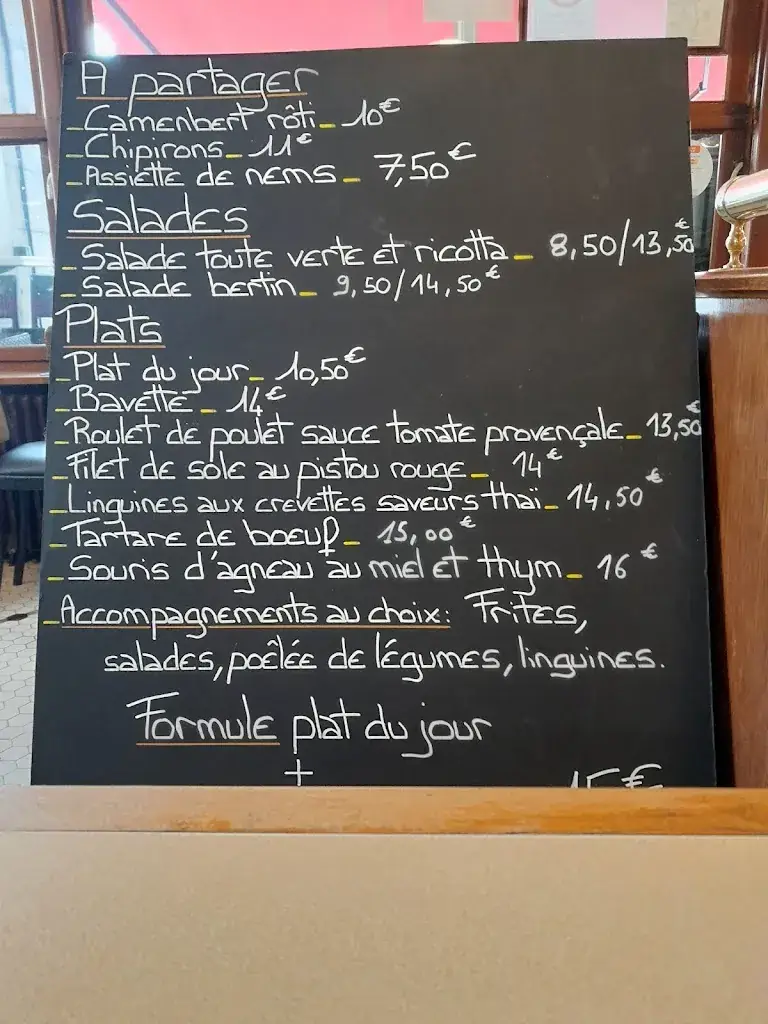 A partager
_Camenbert rôti_ 10€
_Chipirons_ 11€
_Assiette de nems_ 7,50€
Salades
_Salade toute verte et ricotta_ 8,50/13,50€
_Salade bertin_ 9,50/14,50€
Plats
_Plat du jour_ 10,50€
_Bavette_ 14€
_Roulet de poulet sauce tomate provençale_ 13,50€
_Filet de sole au pistou rouge_ 14€
_Linguines aux crevettes saveurs thaï_ 14,50€
_Tartare de boeuf_ 15,00€
_Souris d'agneau au miel et thym_ 16€
_Accompagnements au choix: Frites,
salades, poêlée de légumes, linguines.
Formule plat du jour
+ 15€